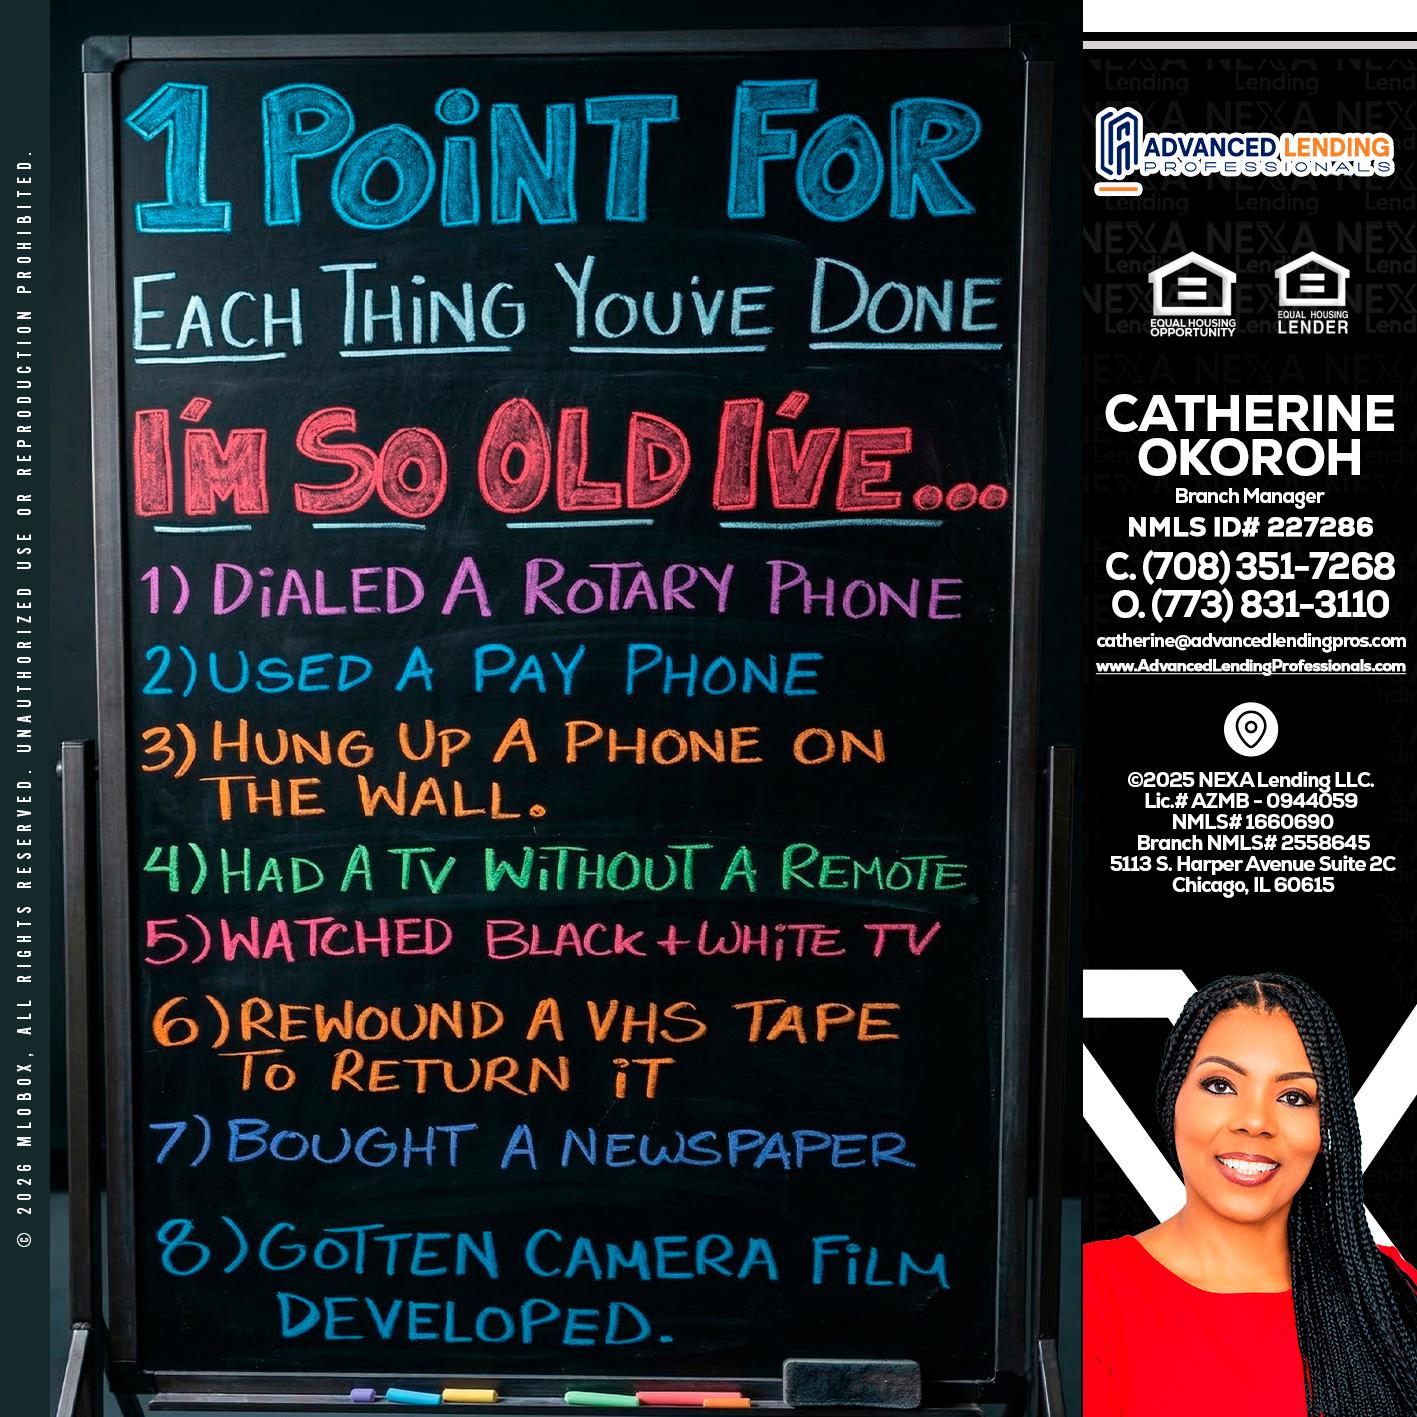 © 2026 MLOBOX, ALL RIGHTS RESERVED. UNAUTHORIZED USE OR REPRODUCTION PROHIBITED.
1 POINT FOR
EACH THING YOU'VE DONE
I'M SO OLD I'VE...
1) DIALED A ROTARY PHONE
2) USED A PAY PHONE
3) HUNG UP A PHONE ON
THE WALL.
4) HAD A TV WITHOUT A REMOTE
5) WATCHED BLACK + WHITE TV
6) REWOUND A VHS TAPE
TO RETURN IT
7) BOUGHT A NEWSPAPER
8) GOTTEN CAMERA FILM
DEVELOPED.
ADVANCED LENDING
PROFESSIONALS
EQUAL HOUSING
OPPORTUNITY
EQUAL HOUSING
LENDER
CATHERINE
OKOROH
Branch Manager
NMLS ID# 227286
C. (708) 351-7268
O. (773) 831-3110
catherine@advancedlendingpros.com
www.AdvancedLendingProfessionals.com
©2025 NEXA Lending LLC.
Lic.# AZMB - 0944059
NMLS# 1660690
Branch NMLS# 2558645
5113 S. Harper Avenue Suite 2C
Chicago, IL 60615